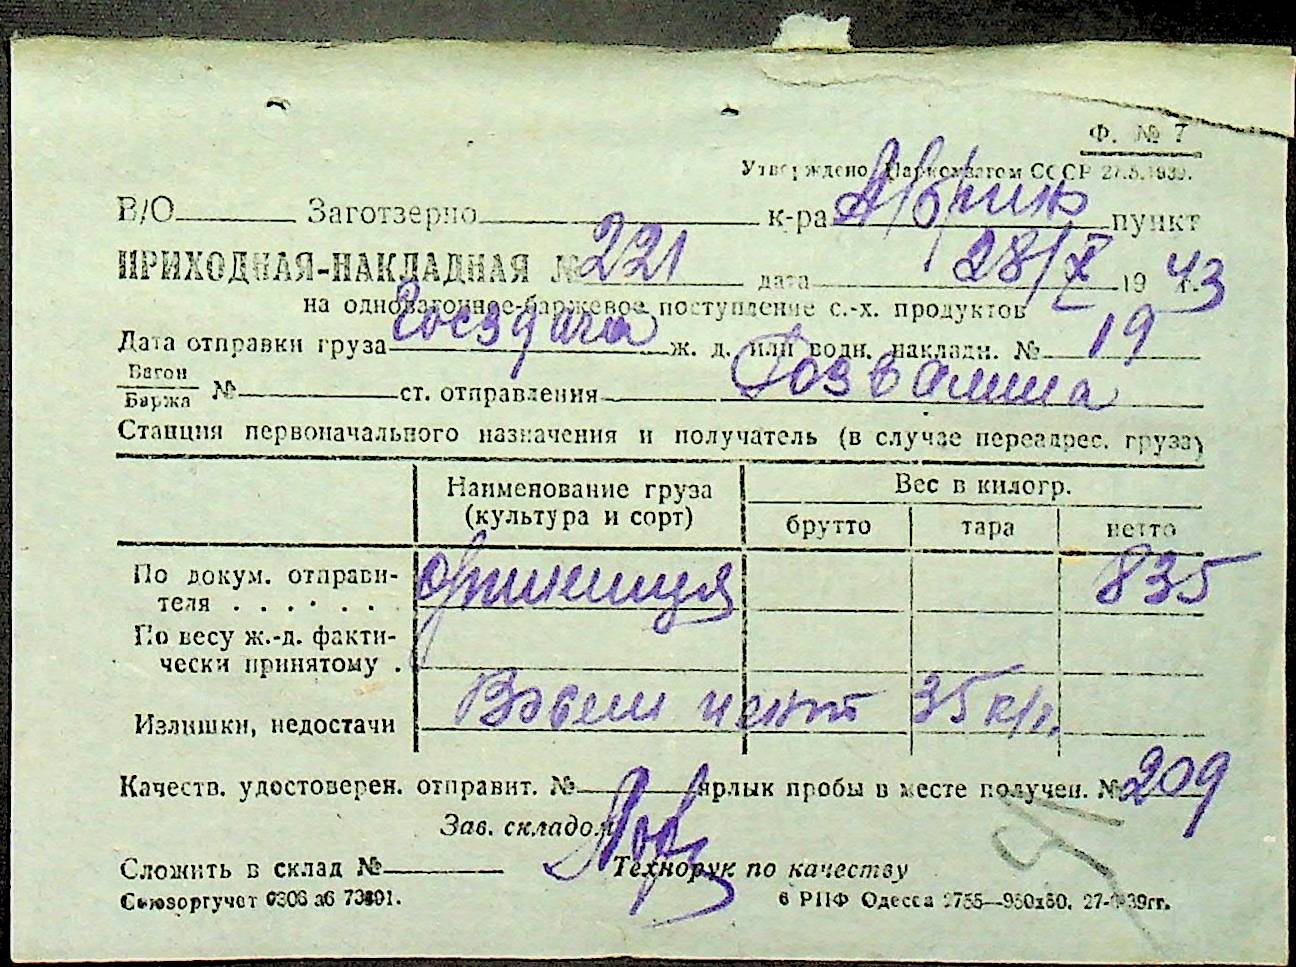 Ф. № 7
Утверждено Наркомзагом СССР 27.5.1939.
В/О Заготзерно к-ра пункт
ПРИХОДНАЯ-НАКЛАДНАЯ № 221 дата 28/X 1943 г.
на одновагонное-баржевое поступление с.-х. продуктов
Дата отправки груза ж. д. или водн. накладн. № 19
Вагон
Баржа № ст. отправления Розвалина
Станция первоначального назначения и получатель (в случае переадрес. груза)
Наименование груза (культура и сорт) Вес в килогр.
брутто тара нетто
По докум. отправи-
теля . . . . . . 835
По весу ж.-д. факти-
чески принятому .
Излишки, недостачи 35
Качеств. удостоверен. отправит. № ярлык пробы в месте получен. № 209
Зав. складом
Сложить в склад № Технорук по качеству
Союзоргучет 6 РПФ Одесса